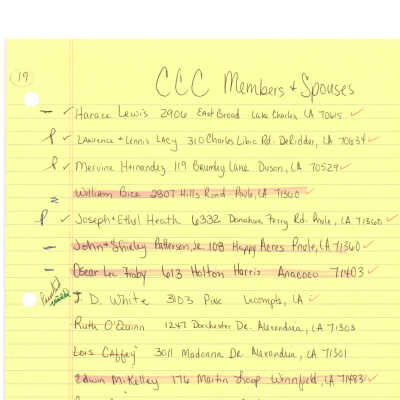 19
CCC Members + Spouses
Harace Lewis 2906 East Broad Lake Charles, LA 70615
Lawrence + Lennis Lacy 310 Charles Libric Rd. DeRidder, LA 70634
Mervine Hernandez 119 Lane Duson, LA 70529
William Bice 2807 Hills Road Pnvle, LA 71360
Joseph + Ethel Heath 6332 Donahue Ferry Rd. Pnvle, LA 71360
John + Shirley Patterson, Jr. 108 Happy Acres Pnvle, LA 71360
Oscar Lee 613 Holton Harris Anacoco 71403
J. D. White 3103 Pine Lecompte, LA
Ruth O'Quinn 1247 Dorchester Dr. Alexandria, LA 71303
Lois Caffey 3011 Madonna Dr. Alexandria, LA 71301
Edwin McKelley 176 Martin Loop Winnfield, LA 71483